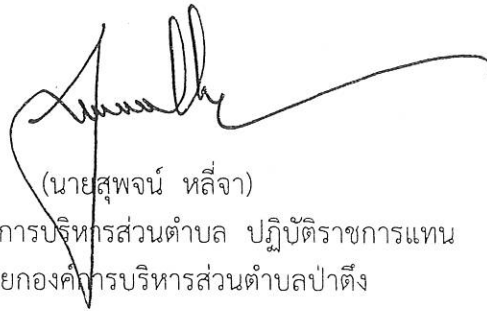 (นายสุพจน์ หลี่จา)
การบริหารส่วนตำบล ปฏิบัติราชการแทน
ยกองค์การบริหารส่วนตำบลป่าตึง